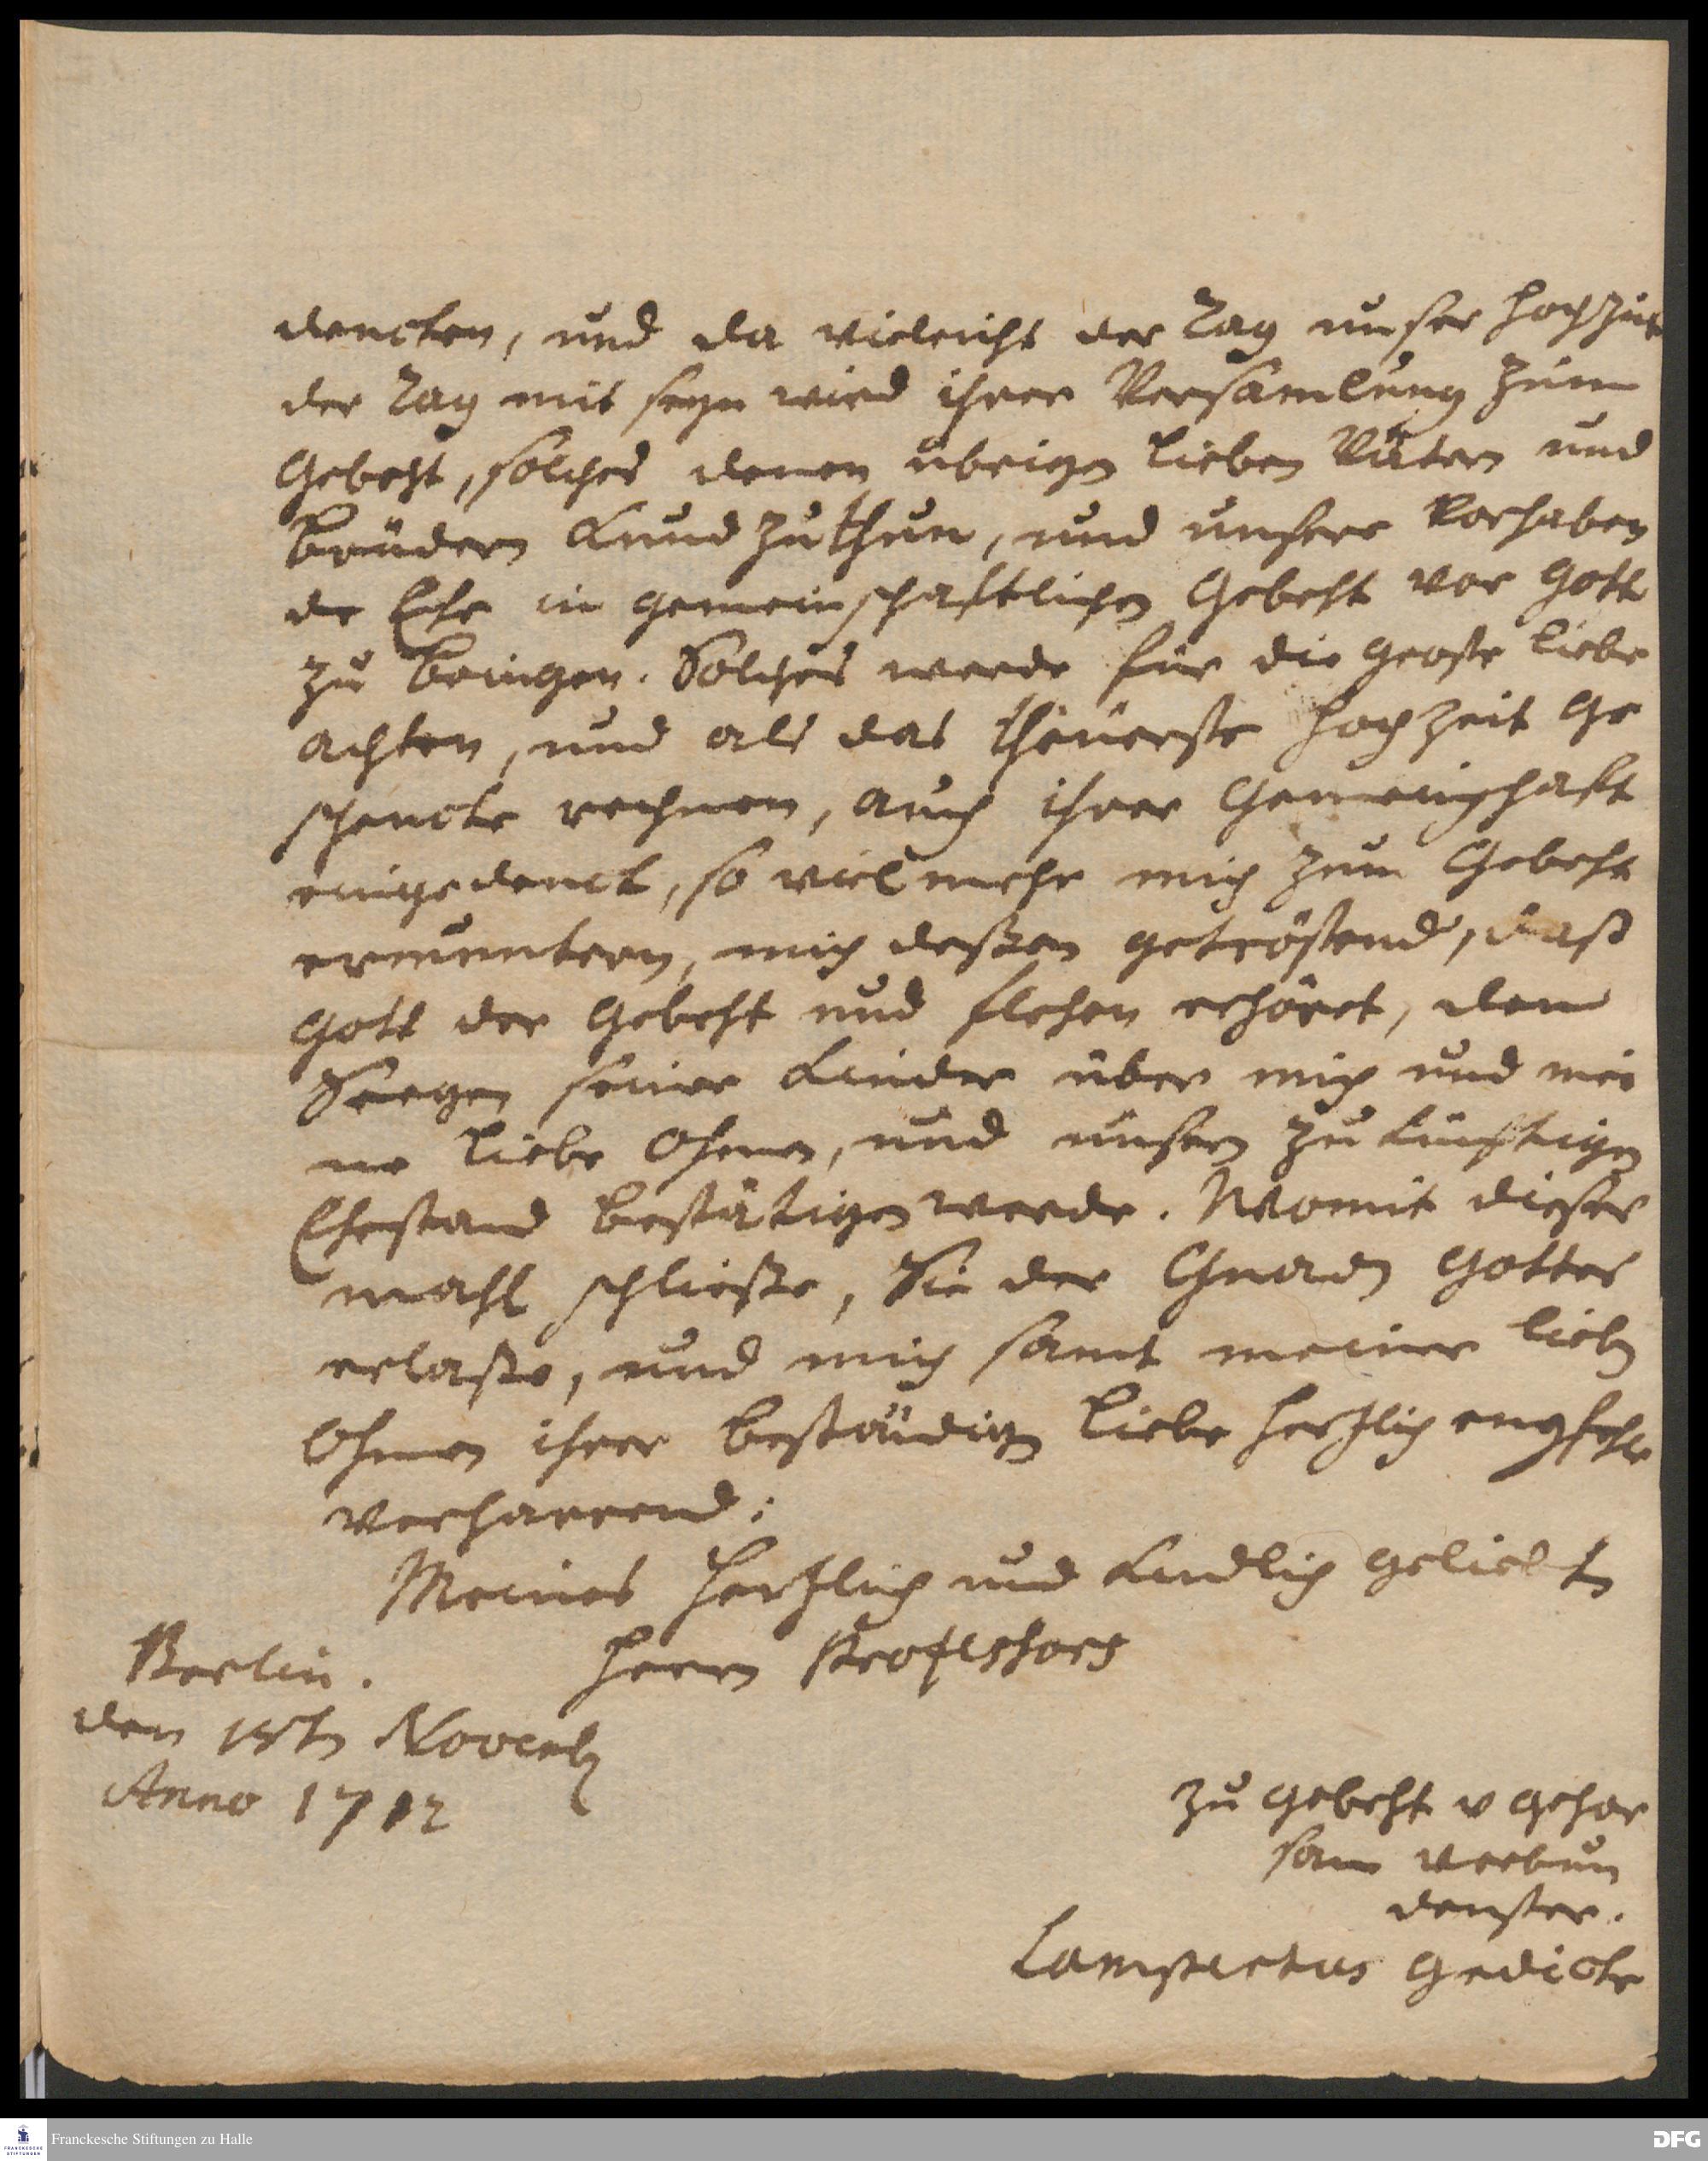 dencken, und da vieleicht der Tag unser Hochzeit
der Tag mit seyn wird ihrer Versamlung zum
Gebeht, solches denen übrigen lieben Vätern und
Brüdern kund zu thun, und unsere Vorhaben
de Ehe in gemeinschaftlichen Gebeht vor Gott
zu bringen. Solches werde für die groste Liebe
achten, und als das theuerste Hochzeit Ge
schencke rechnen, auch ihrer Gemeinschaft
eingedenck, so viel mehr mich zum Gebeht
ermuntern, mich deßen getröstend, daß
Gott der Gebeht und flehen erhöret, den
Seegen seiner Kinder über mich und mei
ne liebe Ohmen, und unsern zukünftigen
Ehestand bestätigen werde. Womit dieses
mahl schließe, Sie der Gnaden Gottes
erlaße, und mich samt meiner lieben
Ohmen ihrer beständigen Liebe hertzlich empfehle
verharrend:
Meines Hertzlich und Kindlich geliebten
Herrn Professors
Berlin.
den 15ten Novemb
Anno 1712
zu gebeht v gehor
sam verbun
denster.
Lampertus Gedicke
Franckesche Stiftungen zu Halle
FRANCKESCHE
STIFTUNGEN
DFG